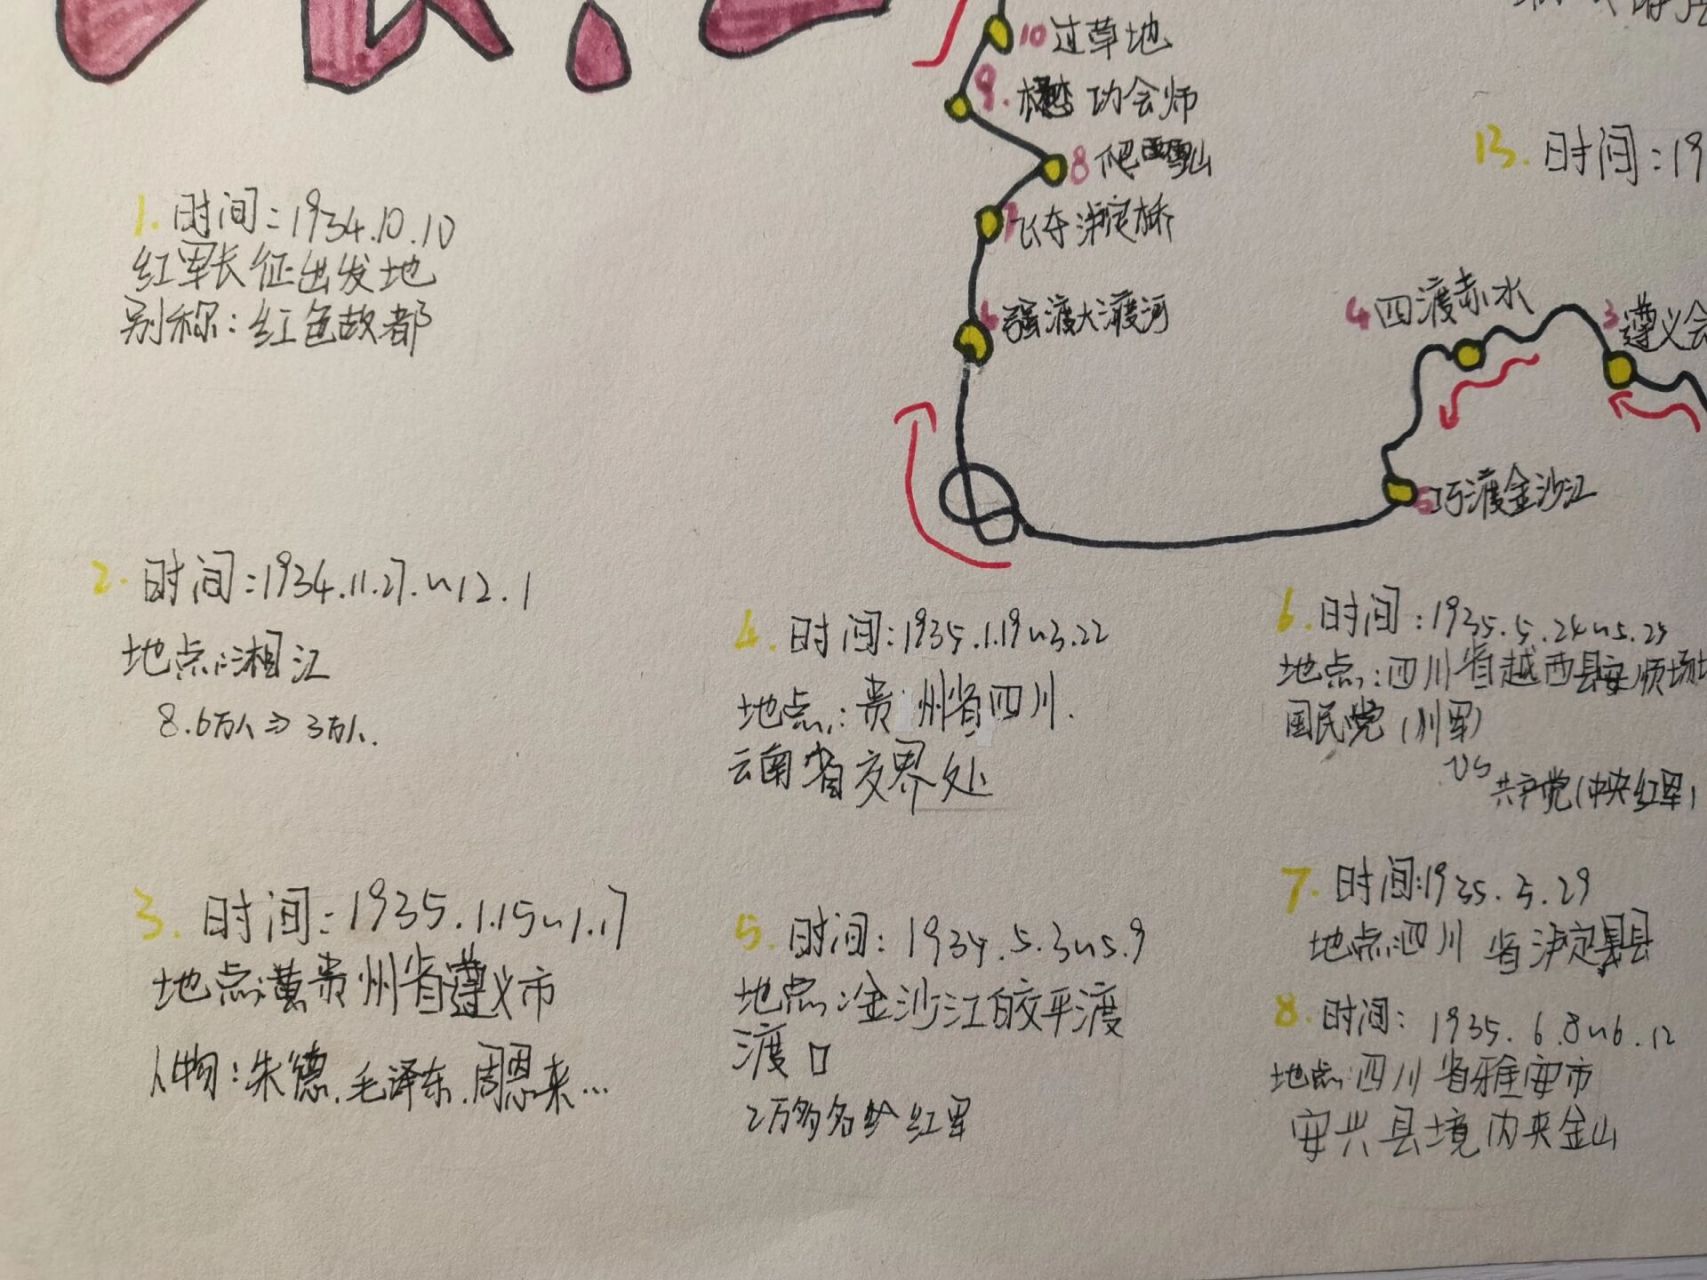 10 过草地
9. 懋功会师
8 爬雪山
7 飞夺泸定桥
6 强渡大渡河
4 四渡赤水
3 遵义会
5 巧渡金沙江
13. 时间:19
1. 时间:1934.10.10
红军长征出发地
别称:红色故都
2. 时间:1934.11.27~12.1
地点:湘江
8.6万人⇒3万人.
3. 时间:1935.1.15~1.17
地点:贵州省遵义市
人物:朱德.毛泽东.周恩来…
4. 时间:1935.1.19~3.22
地点:贵州省四川.
云南省交界处
5. 时间:1934.5.3~5.9
地点:金沙江皎平渡
渡口
2万多名 红军
6. 时间:1935.5.24~5.25
地点:四川省越西县安顺场
国民党(川军)
VS
共产党(中央红军)
7. 时间:1935.5.29
地点:四川省泸定县
8. 时间: 1935.6.8~6.12
地点:四川省雅安市
安兴县境内夹金山